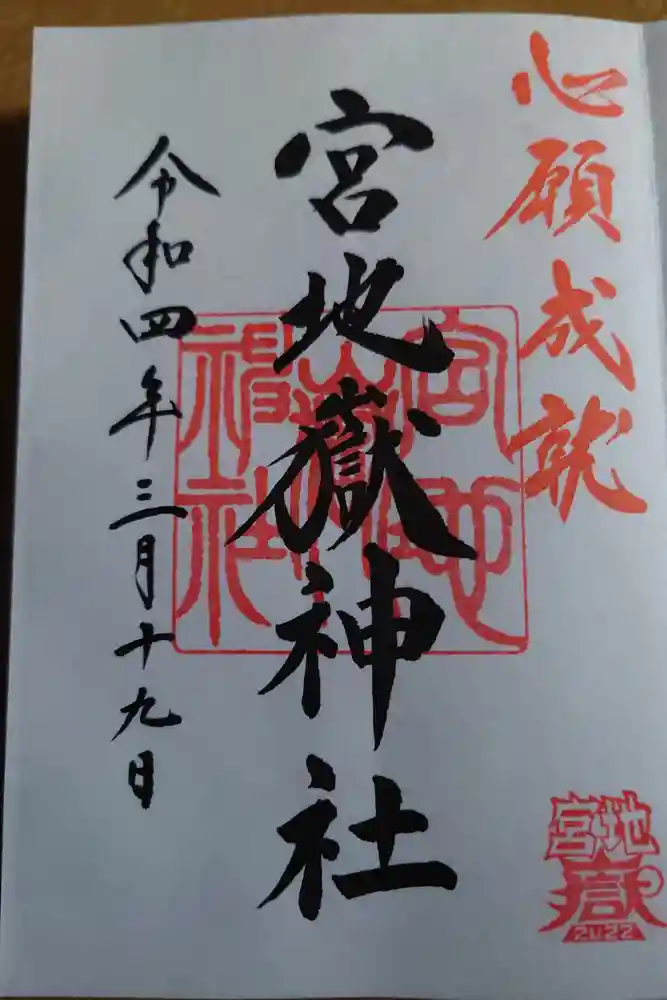 心願成就
宮地嶽神社
令和四年三月十九日
宮地
嶽
2022